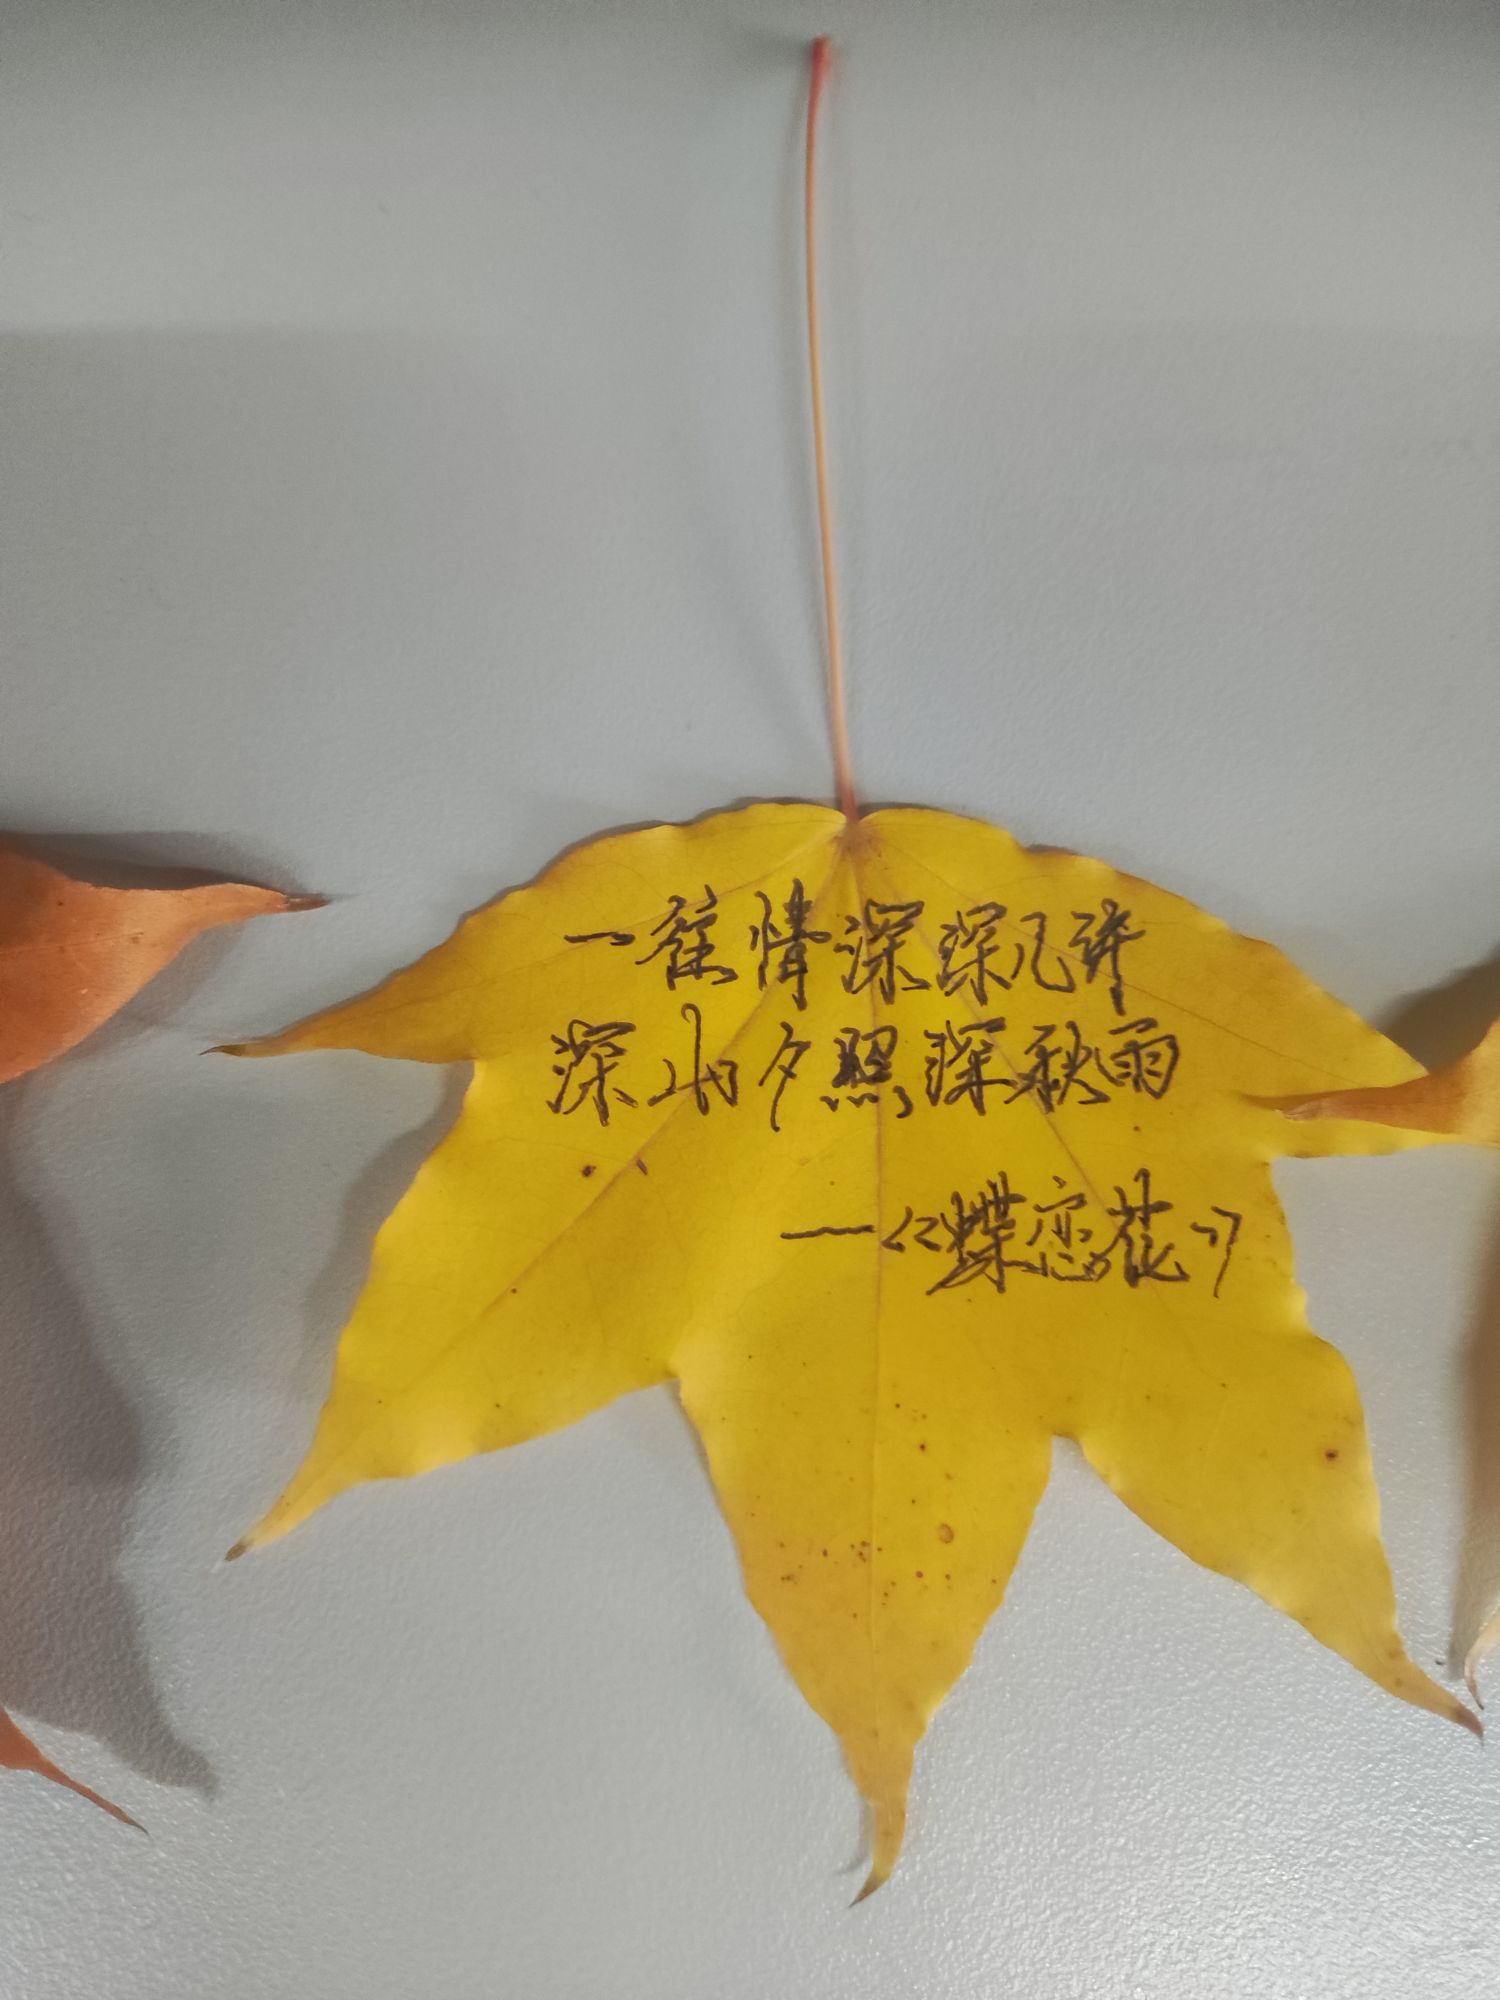 一往情深深几许
深山夕照深秋雨
——《蝶恋花》